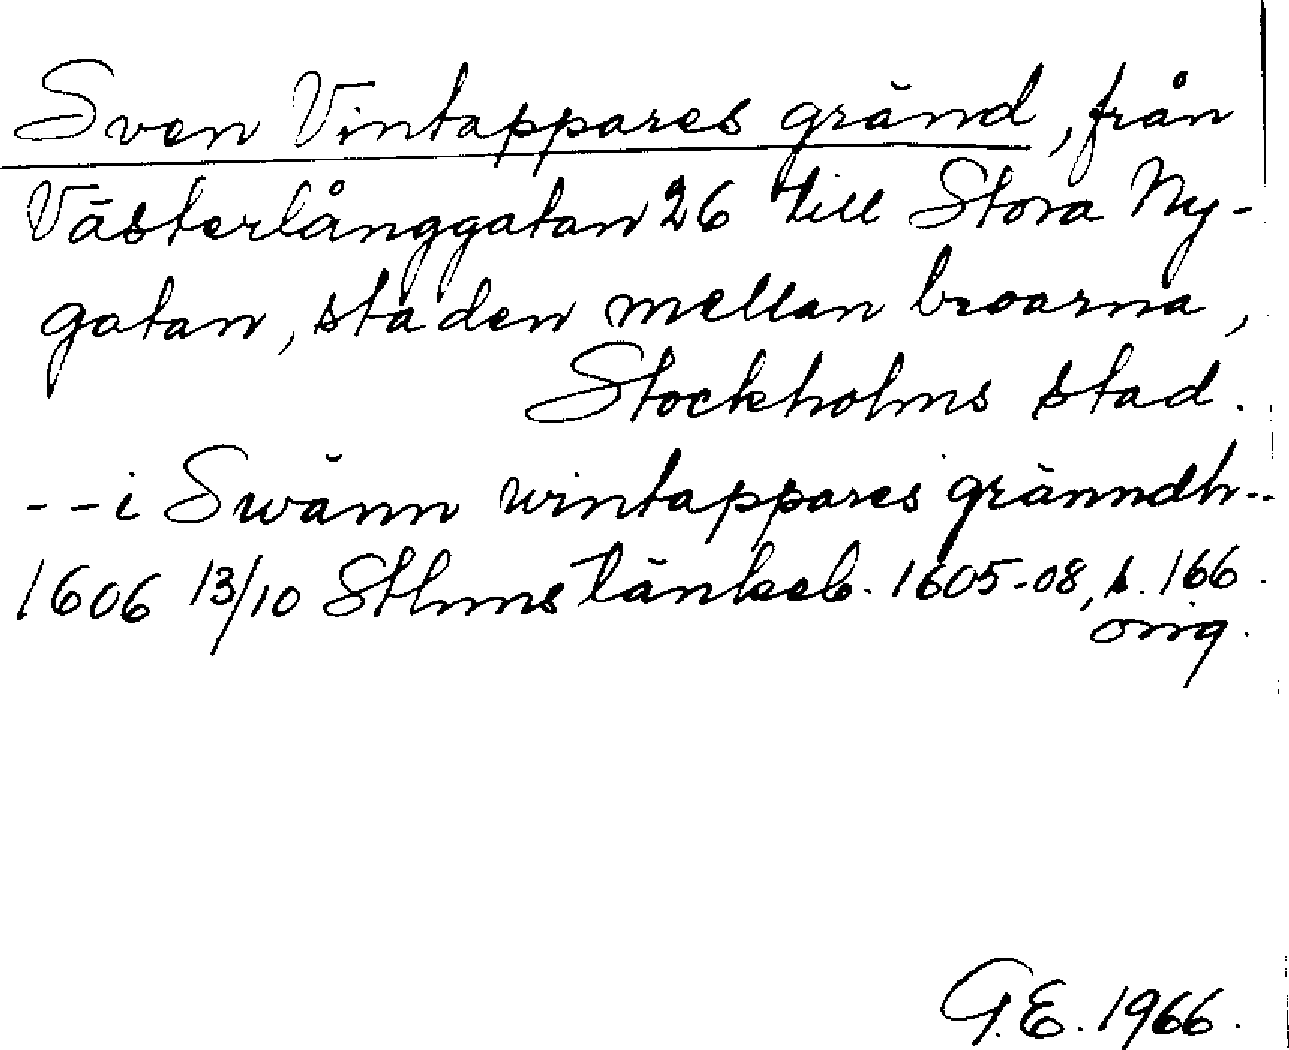 Sven Vintappares gränd, från
Västerlånggatan 26 till Stora Ny-
gatan, staden mellan broarna,
Stockholms stad.
--i Swänn wintappares gränndh--
1606 13/10 Sthms tänkeb. 1605-08, s. 166.
orig.
G.E. 1966.